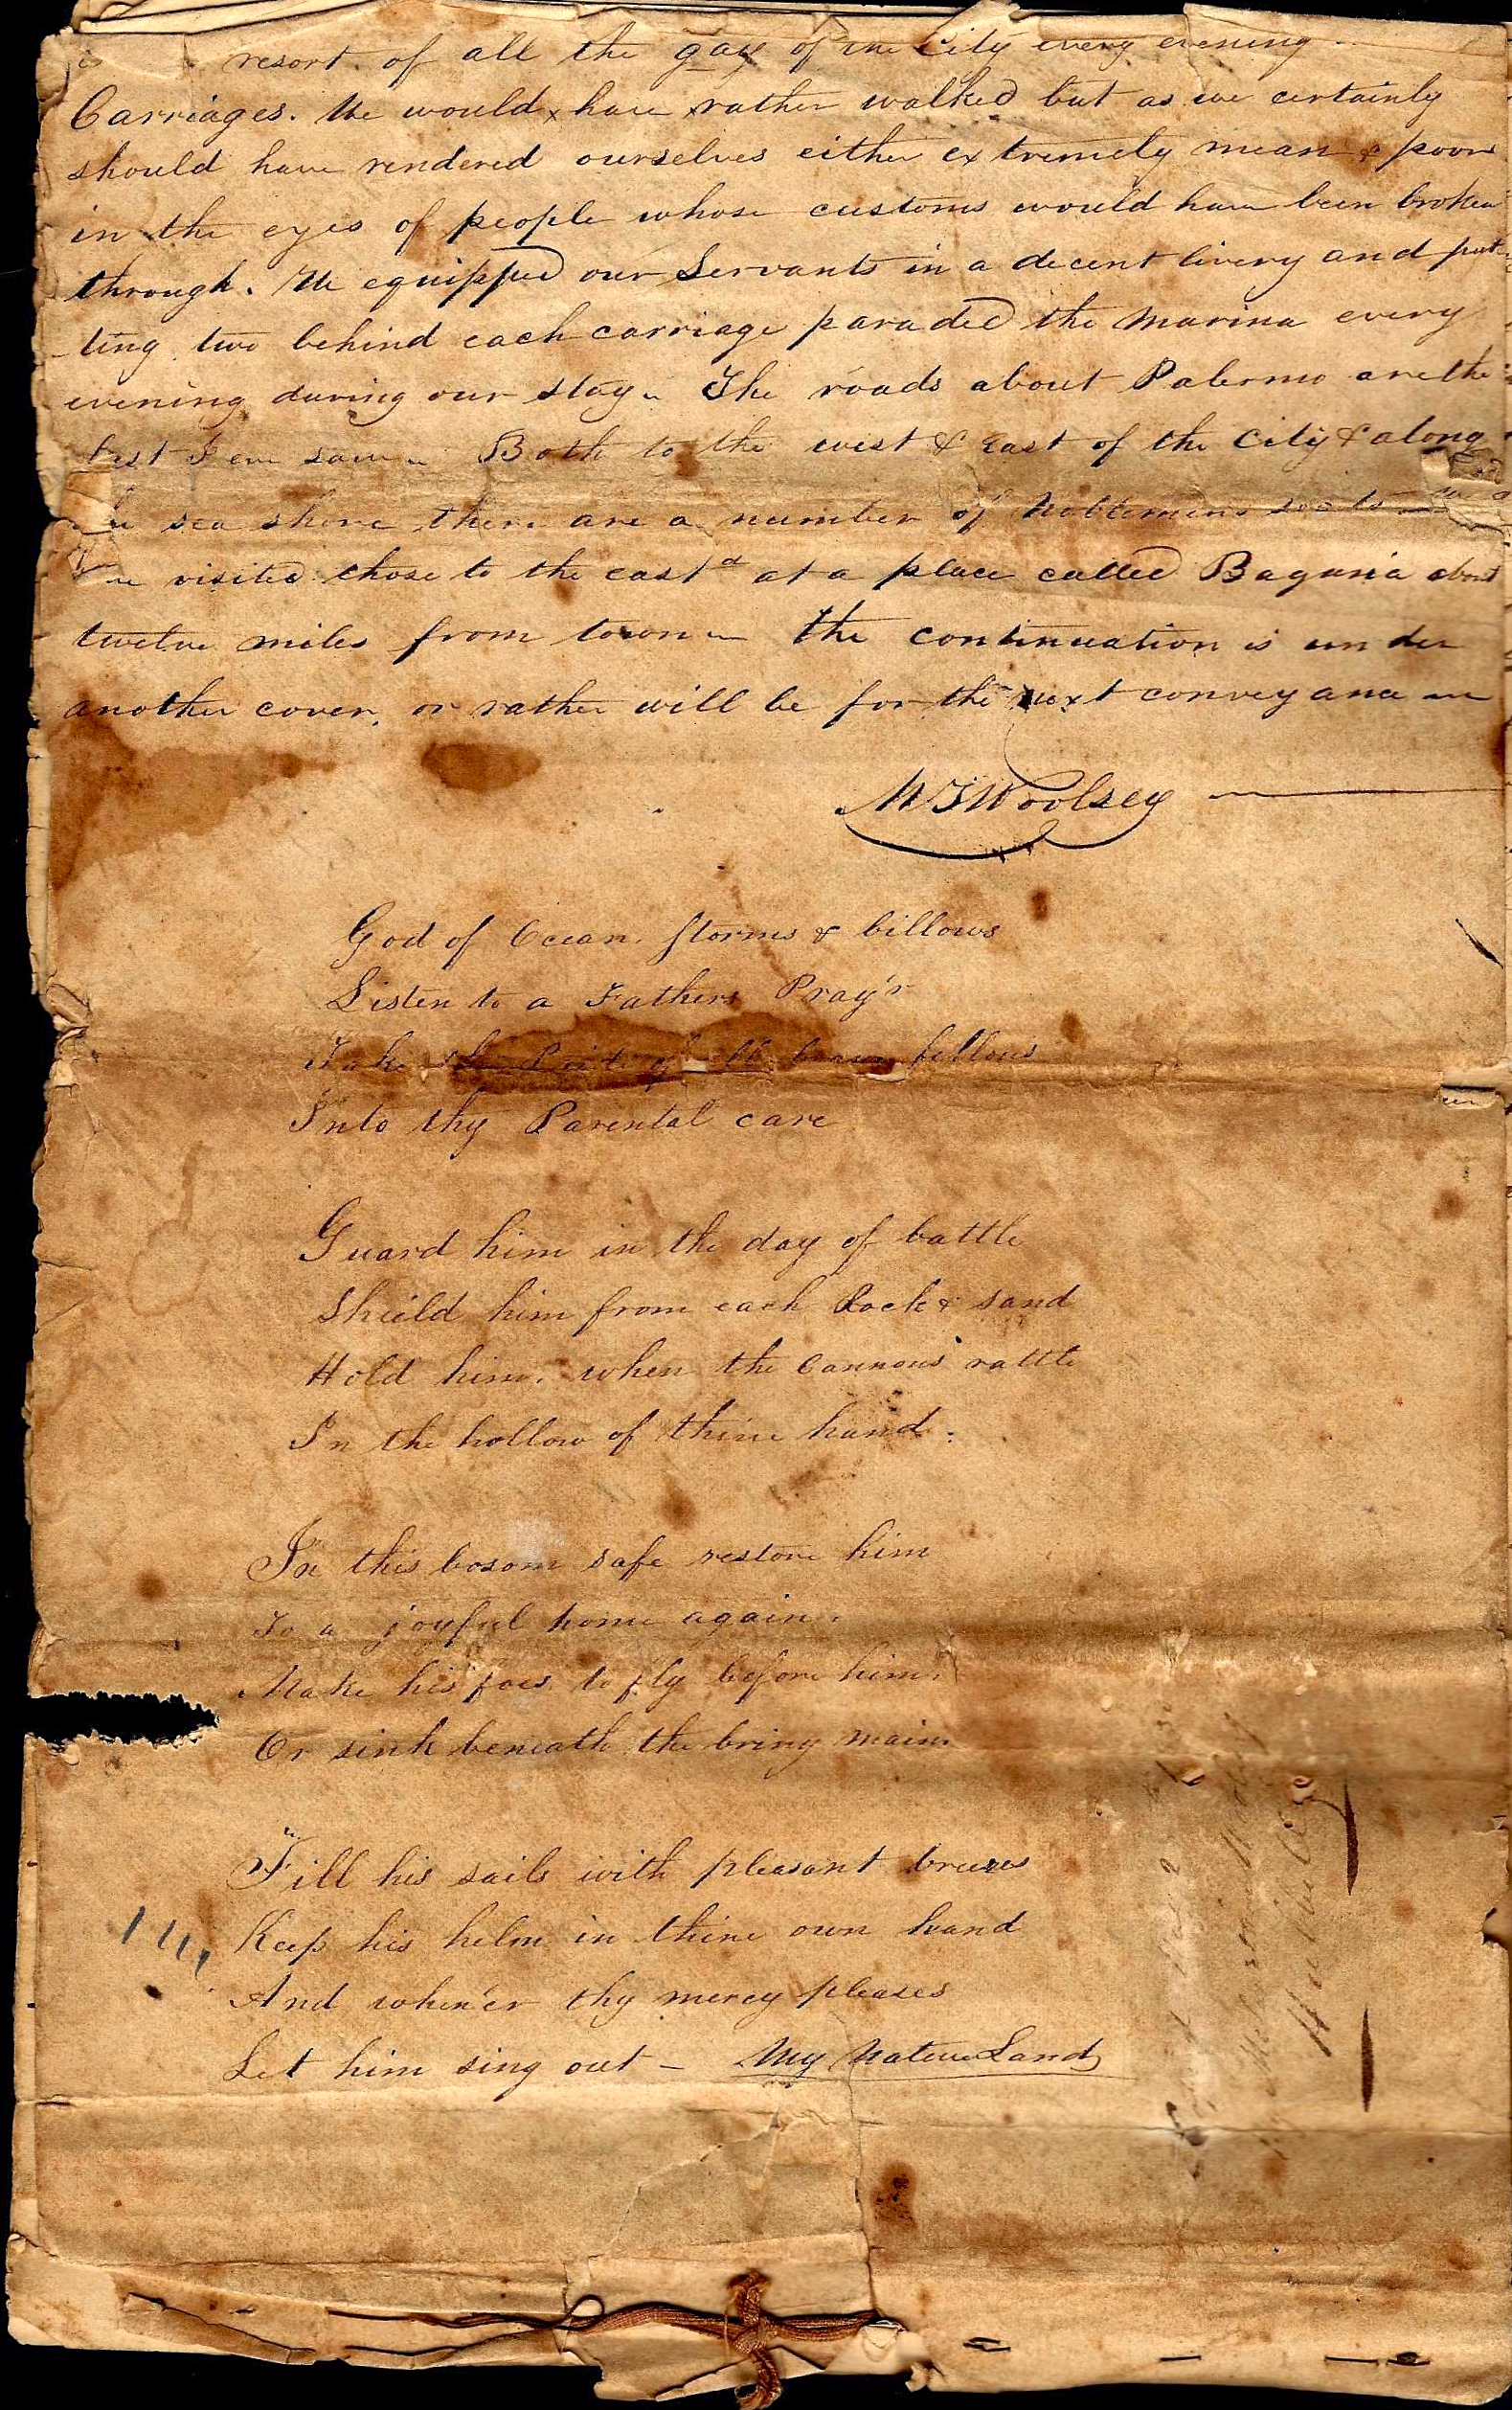 resort of all the gay of the City every evening
Carriages. We would have rather walked but as we certainly
should have rendered ourselves either extremely mean & poor
in the eyes of people whose customs would have been broken
through. We equipped our Servants in a decent livery and put
-ting two behind each carriage paraded the Marina every
evening during our stay. The roads about Palermo are the
best I ever saw. Both to the west & East of the City & along
the sea shore there are a number of Noblemens seats
visited those to the eastd at a place called Bagaria about
twelve miles from town – the continuation is under
another cover, or rather will be for the next conveyance
M T Woolsey
God of Ocean, Storms & billows
Listen to a Fathers Pray'r
Take the of brave fellows
Into thy Parental care
Guard him in the day of battle
Shield him from each Rock & sand
Hold him, when the Cannons rattle
In the hollow of thine hand.
In this bosom safe restore him
To a joyful home again.
Make his foes to fly before him.
Or sink beneath the briny main.
Fill his sails with pleasant breezes
Keep his helm in thine own hand
And when'er thy mercy pleases
Let him sing out – My Native Land